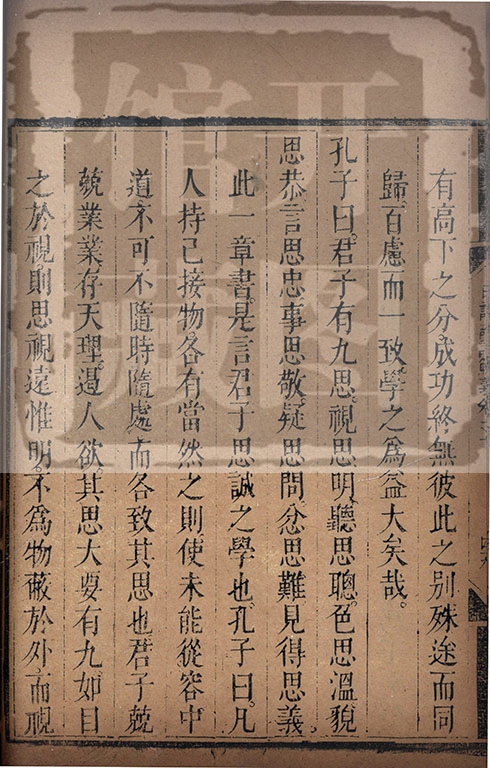 有高下之分。成功終無彼此之別。殊途而同
歸。百慮而一致。學之爲益大矣哉。
孔子曰。君子有九思。視思明。聽思聰。色思溫。貌
思恭。言思忠。事思敬。疑思問。忿思難。見得思義。
此一章書。是言君子思誠之學也。孔子曰。凡
人持己接物。各有當然之則。使未能從容中
道。不可不隨時隨處而各致其思也。君子兢
兢業業。存天理。遏人欲。其思大要有九。如目
之於視。則思視遠惟明。不爲物蔽於外。而視